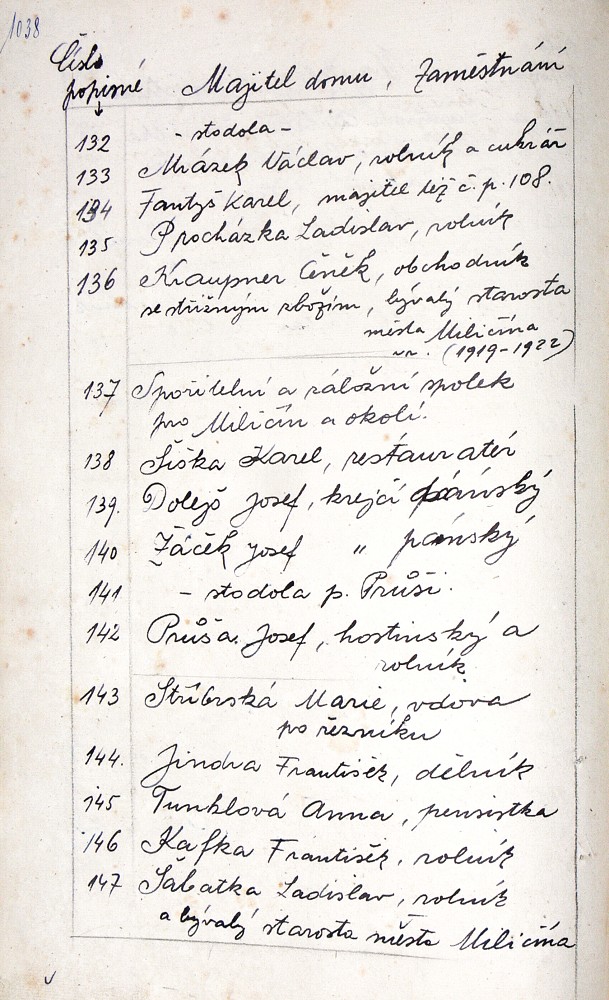 1038
Číslo
popisné Majitel domu, Zaměstnání
132 - stodola -
133 Mrázek Václav, rolník a cukrář
134 Fantyš Karel, majitel též č. p. 108.
135 Procházka Ladislav, rolník
136 Kraupner Čeněk, obchodník
se střižným zbožím, bývalý starosta
města Miličína
(1919-1922)
137 Spořitelní a záložní spolek
pro Miličín a okolí.
138 Šiška Karel, restauratér
139. Dolejš Josef, krejčí pánský
140 Žáček Josef " pánský
141 - stodola p. Průši.
142 Průša Josef, hostinský a
rolník
143 Stříbrská Marie, vdova
po řezníku
144. Jindra František, dělník
145 Tunklová Anna, pensistka
146 Kafka František, rolník
147 Šabatka Ladislav, rolník
a bývalý starosta města Miličína